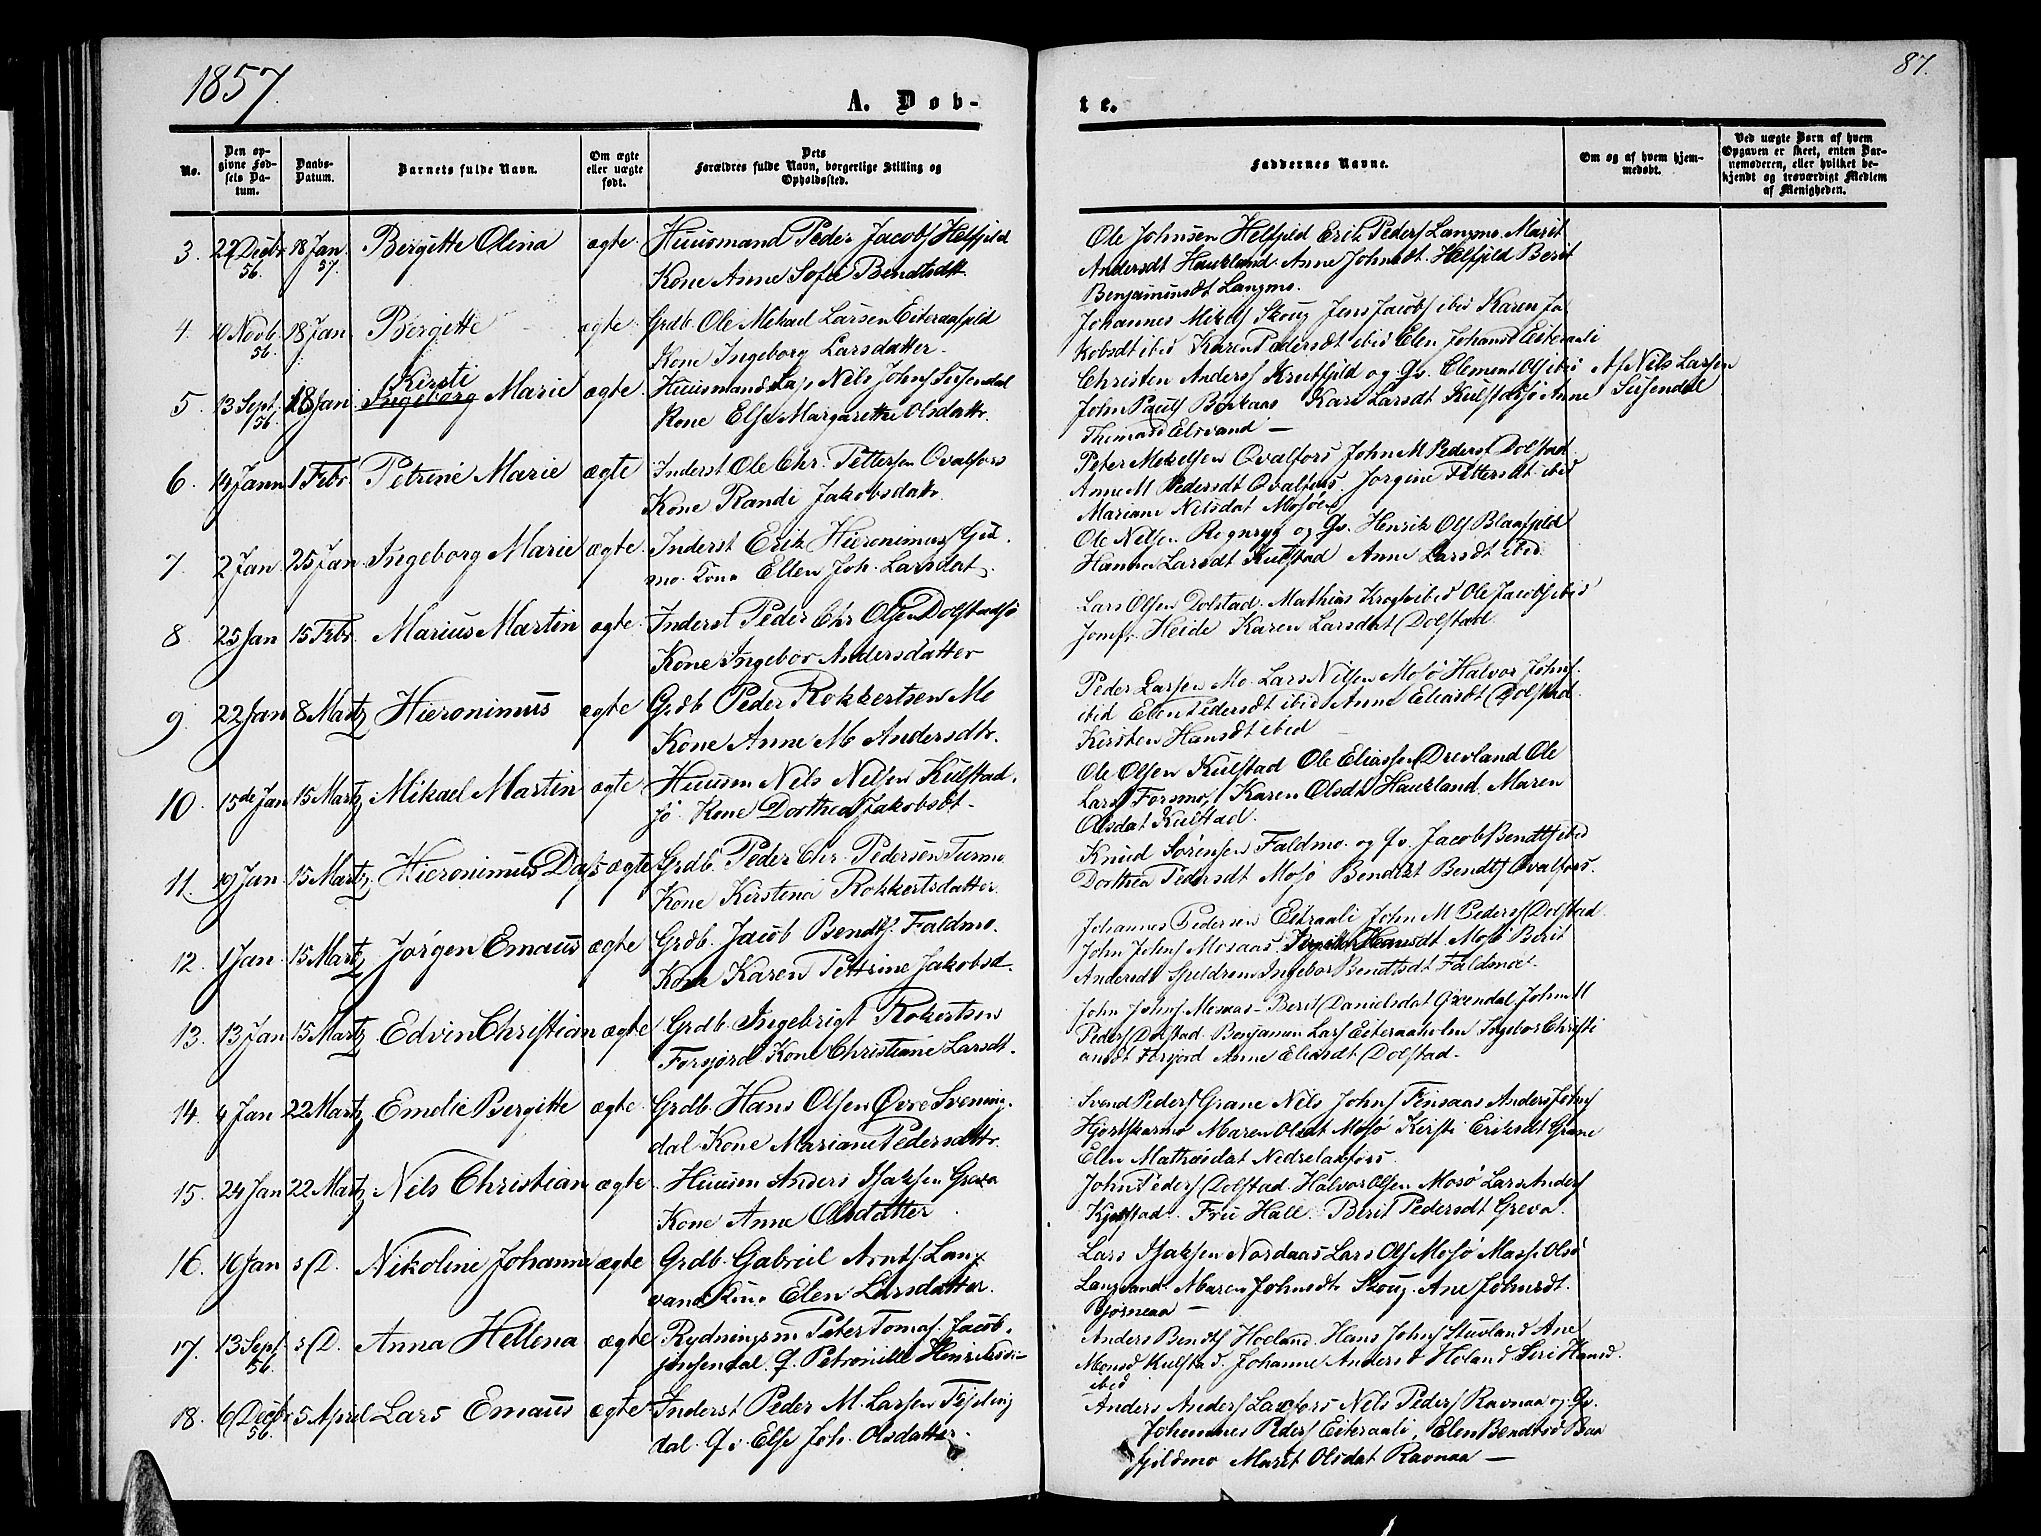 1857.
A. Døb-
te.
87.
No.
Den op-
givne Fød-
sels Da-
tum.
Daabs-
Datum.
Barnets fulde Navn.
Om ægte
eller uægte
født.
Dets
Forældres fulde Navn, borgerlige Stilling og
Opholdssted.
Faddernes Navne.
Om og af hvem hjem-
medøbt.
Ved uægte Børn af hvem
Opgaven er skeet, enten Bar-
nemoderen, eller hvilket be-
kjendt og troværdigt Medlem
af Menigheden.
3. 22 Decbr 56. 18 Jan 57. Bergitte Olina ægte Huusmand Peder Jacobs Helfjeld
Kone Anne Sofie Bendtsdtt.
Ole Johnsen Helfjeld Erik Peders Langmo. Marit
Andersdt Haukland. Anne Johnsdt. Helfjeld Berit
Benjaminsdt Langmo.
4. 10 Novb 56. 18 Jan Bergitte ægte Grdb. Ole Mekael Larsen Eiteraafjeld
Kone Ingeborg Larsdatter.
Johannes Mikels Skoug Jens Jacobs ibid Karen Ja
kobsdt ibid Karen Pedersdt ibid Elen Johansd Eiteraali
5. 13 Sept 56. 18 Jan Kirsti Ingeborg Marie ægte Huusmand Nils Johns Susendal
Kone Else Margarethe Olsdattr.
Christen Anders Krutfjeld og Qv. Clement Ols ibid
John Pauls Karen Larsdt Kulstadsjø Anne
Thomasd Elsvand —
Af Nils Larsen
Susendal
6. 14 Jann 1 Febr Petrine Marie ægte Inderst Ole Chr. Pettersen Qvalfors
Kone Randi Jakobsdatr.
Peter Mekelsen Qvalfors John M Peders Dolstad
Anne M Pedersdt Qvalfors. Jørgine Pettersdt ibid
Mariane Nilsdat Mosøen
7. 2 Jan 25 Jan Ingeborg Marie ægte Inderst Erik Hieronimus
mo. Kone Ellen Joh. Larsdat.
Ole Nilsen Regnryg og Qv. Henrik Ols Blaafjeld
Hanna Larsdt Kulstad Anne Larsdt ibid
8. 25 Jan 15 Febr Marius Martin ægte Inderst Peder Chr Olsen Dolstadsjø
Kone Ingebor Andersdatter
Lars Olsen Dolstad. Mathias Krogh ibid Ole Jacobs ibid
Jomfr. Heide Karen Larsdat Dolstad
9. 22 Jan 8 Martz Hieronimus ægte Grdb Peder Rokkertsen Mo
Kone Anne M Andersdtr.
Peder Larsen Mo. Lars Nilsen Mosø Halvor Johns
ibid Elen Pedersdt ibid Anne Eliasdt Dolstad
Kirsten Hansdt ibid
10. 15de Jan 15 Martz Mikael Martin ægte Huusm Nels Nelsen Kulstad
sjø. Kone Dorthea Jakobsdt -
Ole Olsen Kulstad Ole Eliassen Drevland Ole
Lars Forsmo, Karen Olsdt Haukland. Maren
Olsdat Kulstad.
11. 19 Jan 15 Martz Hieronimus Dass ægte Grdb. Peder Chr. Pedersen Turmo
Kone Kirstina Rokkertsdatter.
Knud Sørensen Faldmo. og Qv. Jacob Bendts ibid
Dorthea Pedersdt Mosø Bendikt Bendts Qvalfors.
12. 1 Jan 15 Martz Jørgen Emaus ægte Grdb. Jacob Bendts. Faldmo.
Kone Karen Pettrine Jakobsd.
Johannes Pedersen Eiteraali John M Peders Dolstad.
John Johns Mosaas. Hansdt Mosø Berit
Andersdt Ingebor Bendtsdt Faldmoe.
13. 13 Jan 15 Martz Edvin Christian ægte Grdb. Ingebrigt Rokertsen
Forsjord Kone Christiane Larsdt.
John Johns. Mosaas - Berit Danielsdat John M
Peders Dolstad. Benjamin Lars Eiteraaholm Ingebor Christi
ansdt Forsjord Anne Eliasdt Dolstad -
14. 4 Jan 22 Martz Emelie Bergitte ægte Grdb. Hans Olsen Øvre Svening
dal Kone Mariane Pedersdattr.
Svend Peders Grane Nils Johns Finsaas Anders Johns
Hjortskarmo Maren Olsdt Mosø Kersti Eriksdt Grane
Elen Mathisdat Nedrelaxfors.
15. 24 Jan 22 Martz Nils Christian ægte Huusm Anders Isaksen Greva
Kone Anne Olsdatter
John Peders Dolstad. Halvor Olsen Mosø Lars Anders
Kjelstad. Fru Hall. Berit Pedersdt Greva.
16. 10 Jan s D. Nikoline Johanne ægte Grdb. Gabriel Arnts Lang
vand Kone Elen Larsdatter.
Lars Isaksen Nordaas Lars Ols Mosø Olsd
Langvand. Maren Johnsdt. Skoug. Ane Johnsdt.
Bjørneaa —
17. 13 Sept 56. s D. Anna Hellena ægte Rydningsm Peter Tomas. Jacob
jønsendal. Q. Petronille Henriksd —
Anders Bendts Høeland. Hans Johns Stuvland Ane
Monsd Kulstad. Johanne Andersd Høland. Siri Hansd.
ibid
18. 6 Decbr 56. 5 April Lars Emaus ægte Inderst Peder M. Larsen
dal. Qv. Else Joh. Olsdatter.
Anders Anders Laxfors Nels Peders Ravnaa og Qv.
Johannes Peders Eiteraali, Elen Bendtsd Baa
fjeldmo Marit Olsdat Ravnaa —